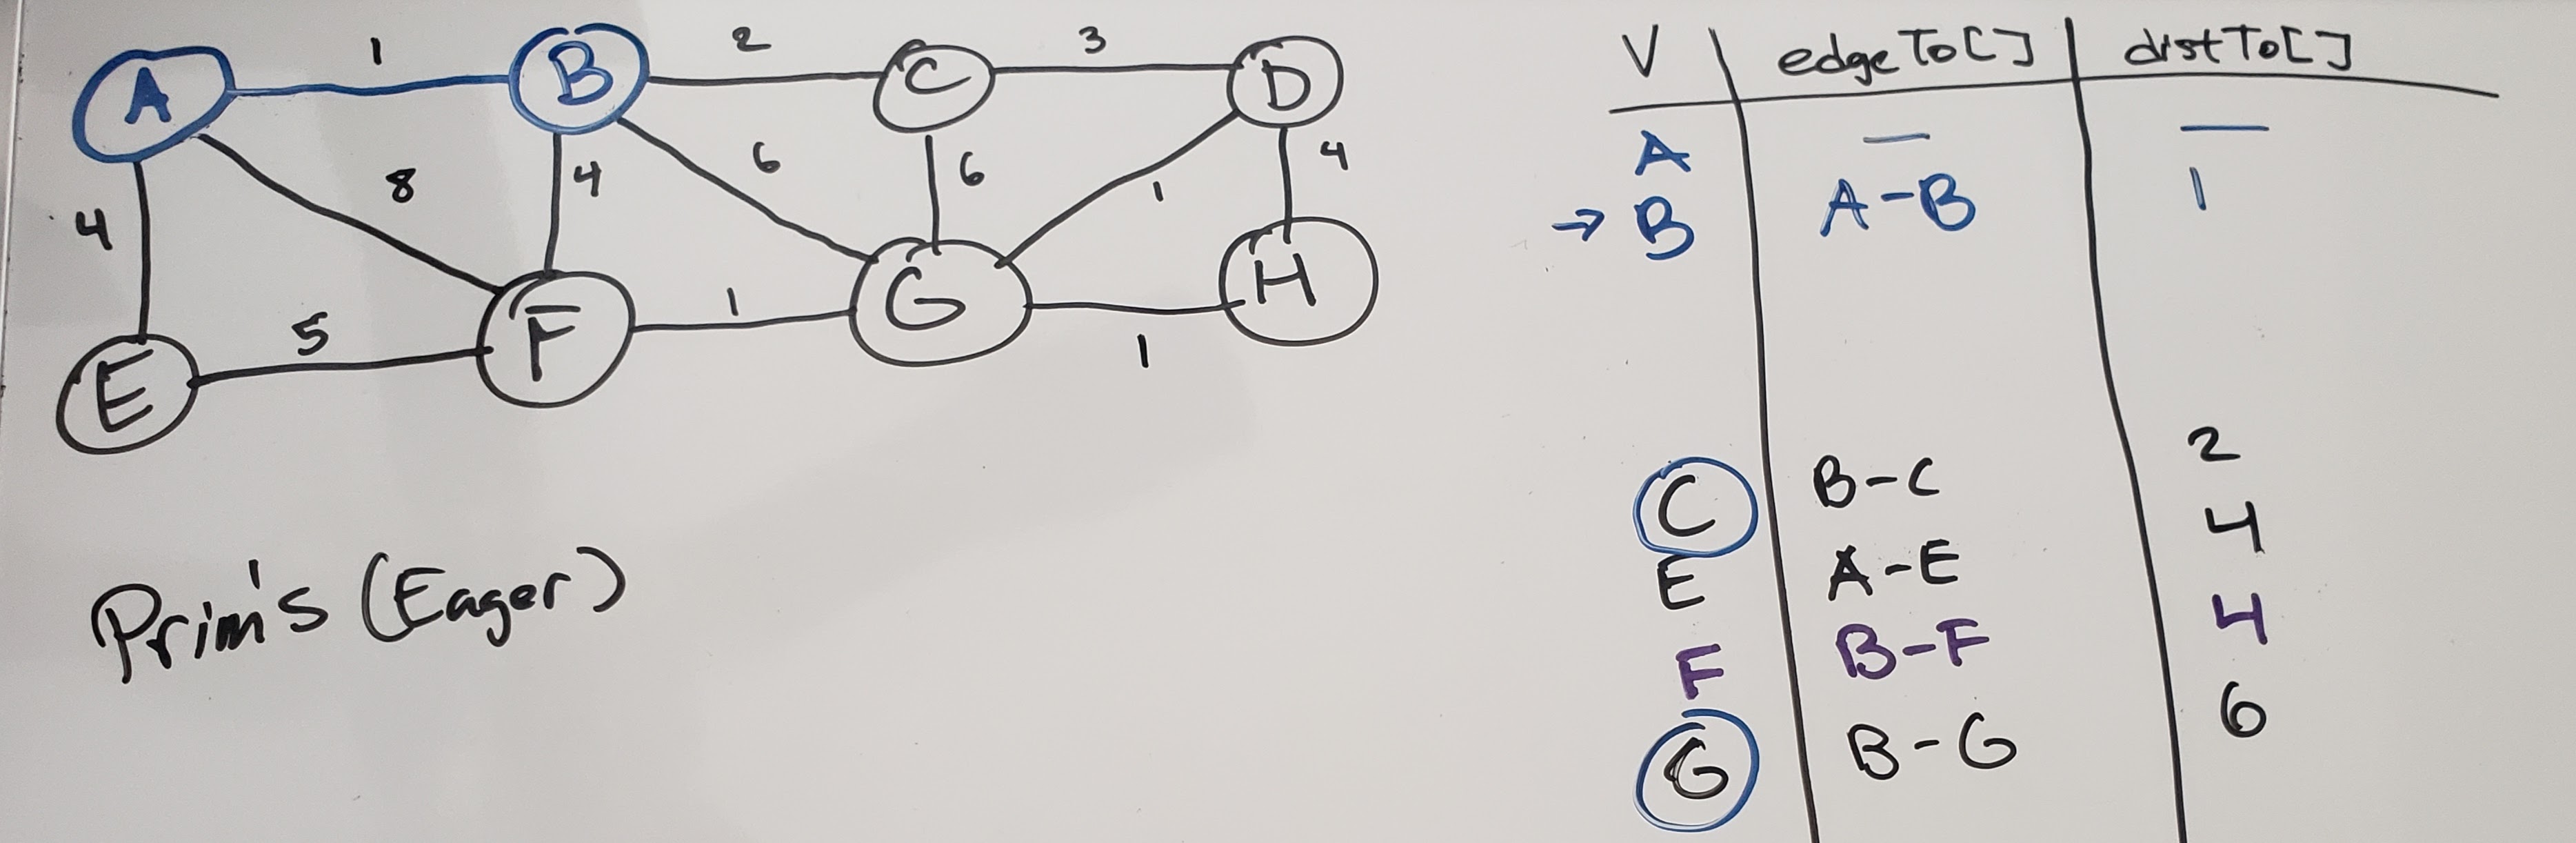 A 1 B 2 C 3 D
4 8 4 6 6 1 4
E 5 F 1 G 1 H
Prim's (Eager)
V edgeTo[] distTo[]
A — —
→ B A-B 1
C B-C 2
E A-E 4
F B-F 4
G B-G 6